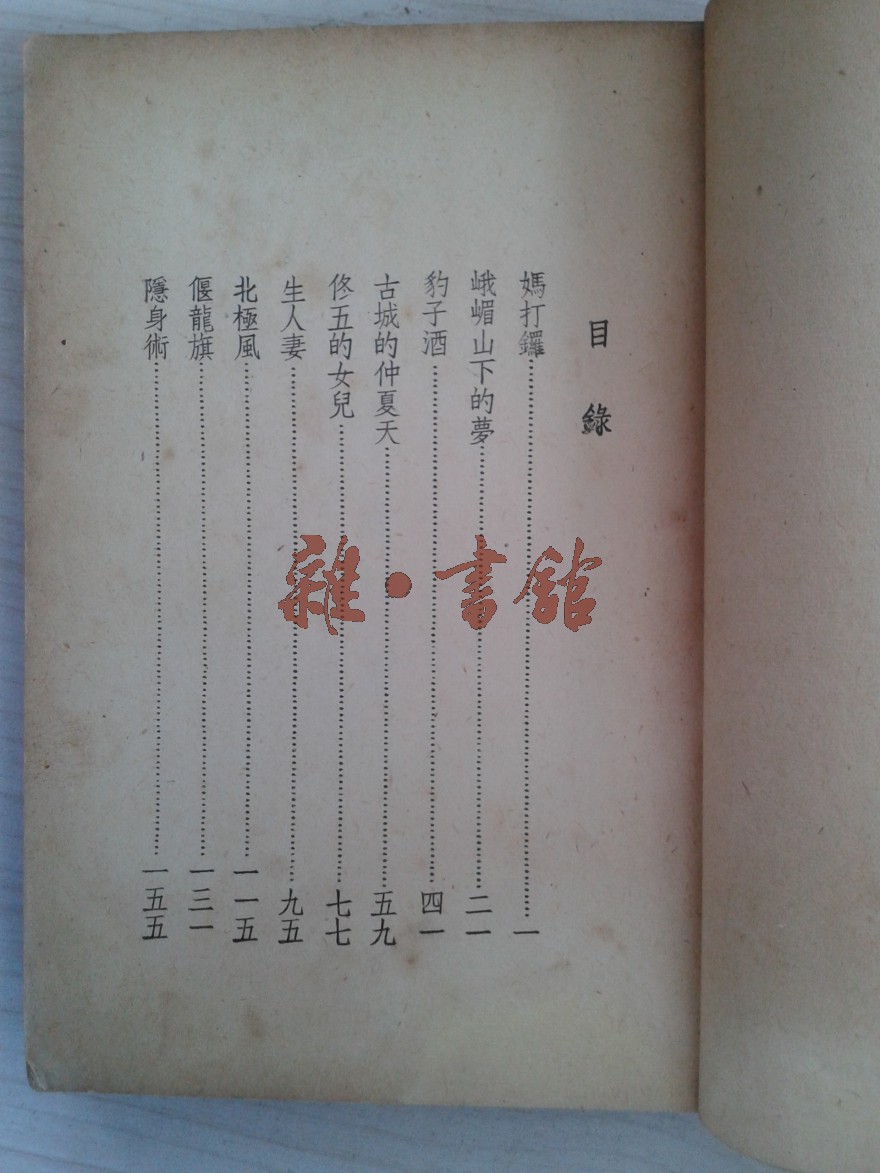 目錄
媽打鑼……一
峨嵋山下的夢……二一
豹子酒……四一
古城的仲夏天……五九
佟五的女兒……七七
生人妻……九五
北極風……一一五
偃龍旗……一三一
隱身術……一五五
雜·書館